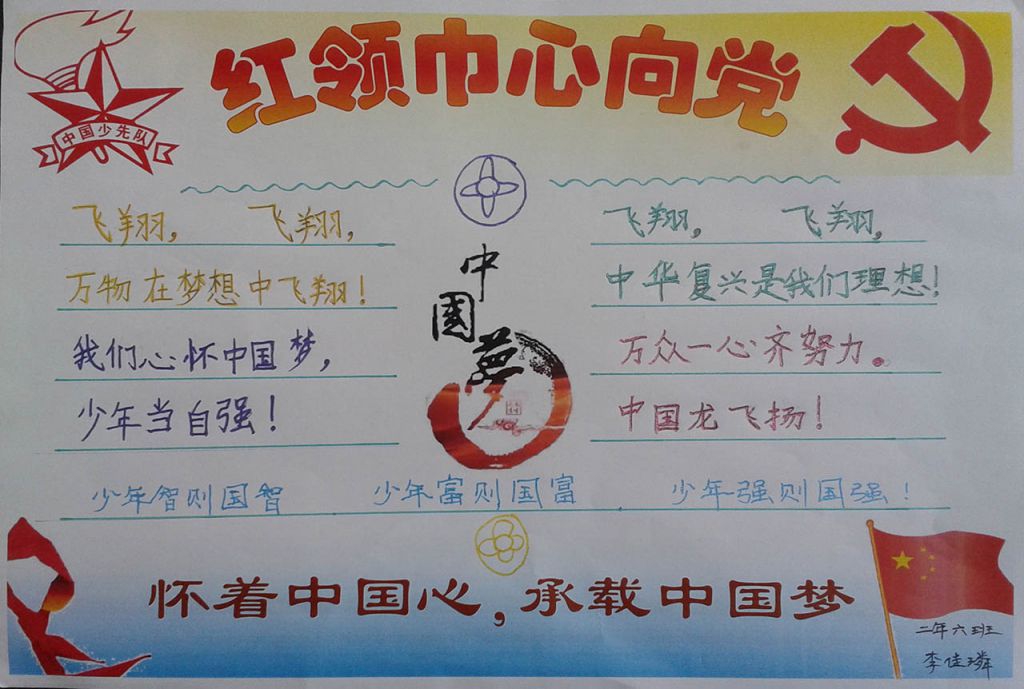 红领巾心向党
中国少先队
飞翔，飞翔，
万物在梦想中飞翔！
我们心怀中国梦，
少年当自强！
中国梦
飞翔，飞翔，
中华复兴是我们理想！
万众一心齐努力。
中国龙飞扬！
少年智则国智 少年富则国富 少年强则国强！
怀着中国心，承载中国梦
二年六班
李佳璘